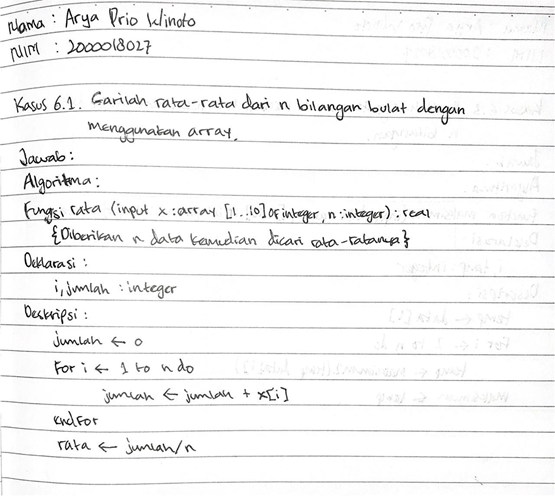 Nama : Arya Prio Winoto
NIM : 2000018027
Kasus 6.1. Carilah rata-rata dari n bilangan bulat dengan
menggunakan array.
Jawab :
Algoritma :
Fungsi rata (input x : array [1..10] of integer, n : integer) : real
{Diberikan n data kemudian dicari rata-ratanya}
Deklarasi :
i, jumlah : integer
Deskripsi :
jumlah ← 0
For i ← 1 to n do
jumlah ← jumlah + x[i]
endfor
rata ← jumlah/n